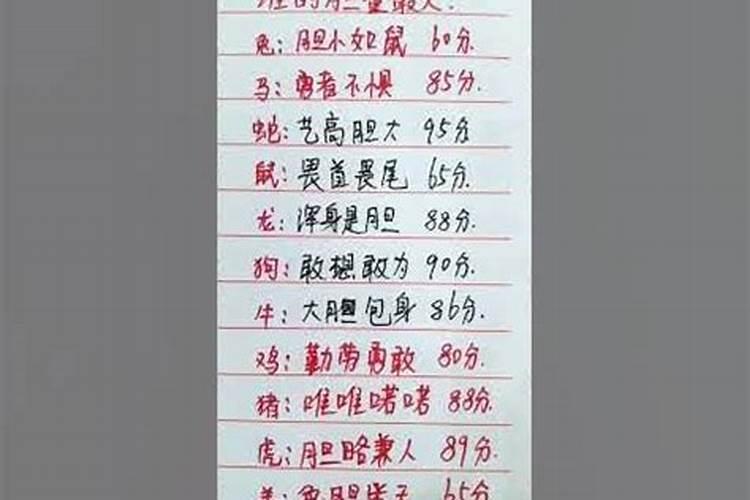 谁的胆量最大:
兔: 胆小如鼠 60分.
马: 勇者不惧 85分.
蛇: 艺高胆大 95分
鼠: 畏首畏尾 65分.
龙: 浑身是胆 88分.
狗: 敢想敢为 90分.
牛: 大胆包身 86分.
鸡: 勤劳勇敢 80分.
猪: 唯唯喏喏 88分.
虎: 胆略兼人 89分.
羊: 65分